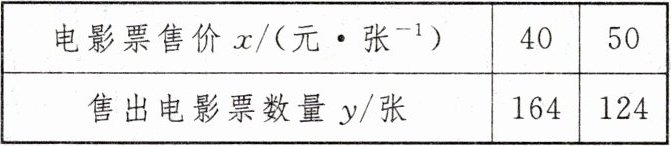 电影票售价 x/(元·张⁻¹) 40 50
售出电影票数量 y/张 164 124